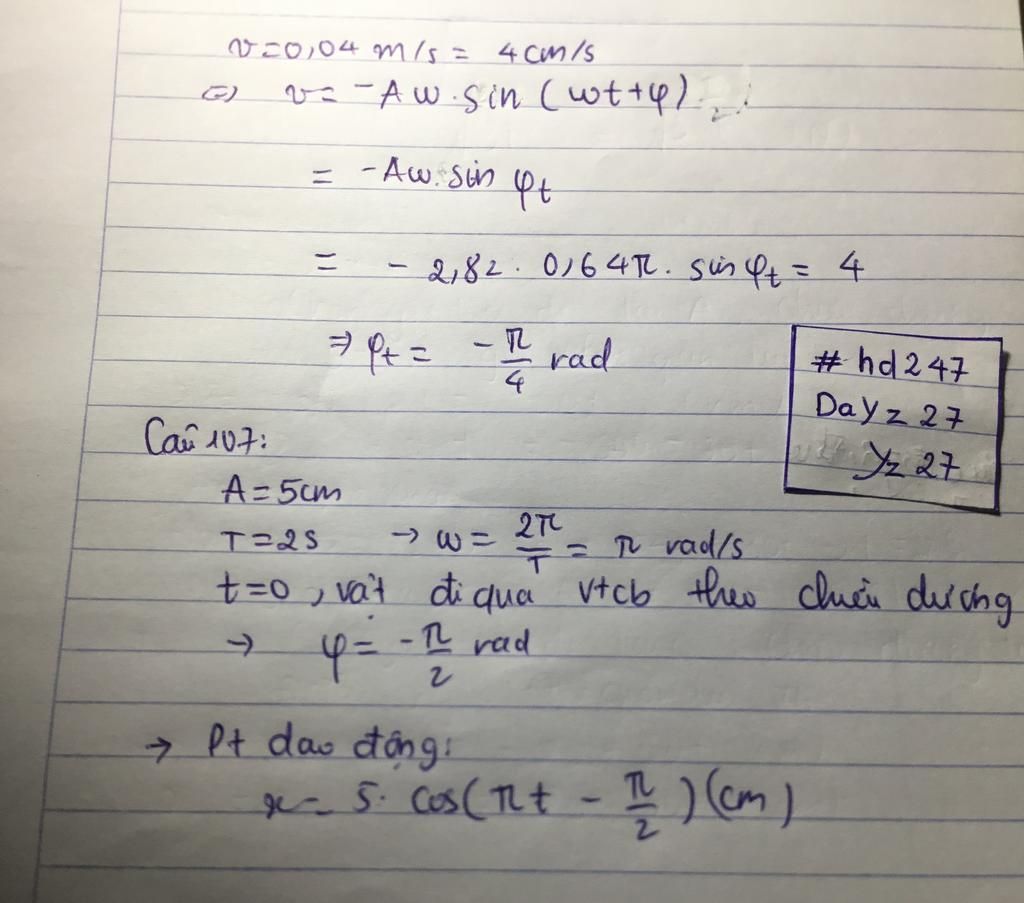 v=0,04 m/s = 4cm/s
⇔ v= -Aw.sin (wt+φ)
= -Aw.sin φt
= - 2,82 . 0,64π. sin φt = 4
⇒ φt = -π/4 rad
# hd247
Dayz 27
Yz 27
Câu 107:
A=5cm
T=2s → w= 2π/T = π rad/s
t=0, vật đi qua vtcb theo chiều dương
→ φ= -π/2 rad
→ Pt dao động:
x= 5. cos(πt - π/2)(cm)